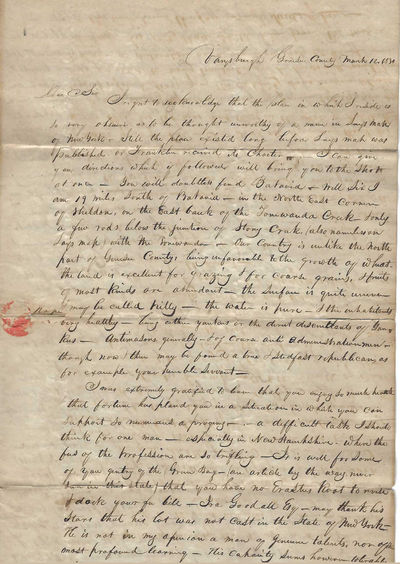 Varysburgh Genesee County March 12, 1830
Dear Sir
I regret to acknowledge that the place in which I reside is
so very obscure as to be thought unworthy of a name in Says map
of New York - Still the place existed long before Says map was
published or Franklin received its Charter - I can give
you directions which if followed will bring you to the Spot
at once - You will doubtless find Batavia - Well Sir I
am 19 miles South of Batavia - in the North East corner
of Sheldon, on the East bank of the Tonnewanda Creek & only
a few rods below the junction of Stony Creek, (also nameless on
Says map) with the Tonnewanda - Our Country is unlike the North
part of Genesee County, being unfavorable to the growth of wheat
the land is excellent for grazing & for coarse grains, & fruits
of most kinds are abundant - the Surface is quite uneven
& may be called hilly - the water is pure - & the inhabitants
very healthy - being either yankees or the direct descendants of Yan-
kees - Antimasons generally - & of course anti administration men -
though now & then may be found a true & stedfast republican, as
for example your humble Servant -
I was extremely gratified to learn that you enjoy so much health
that fortune has placed you in a Situation in which you can
support so numerous a progeny - a difficult task I Should
think for one man - especially in New Hampshire - where the
fees of the Profession are so trifling - It is well for some
of you gentry of the Green Bag - an article by the way never
seen in this state, that you have no Erastus Root to revise
& dock your fee bill - Ira Goodall Esq - may thank his
Stars that his lot was not cast in the State of New York -
He is not in my opinion a man of genuine talents, nor of the
most profound learning - His capacity seems however tolerable